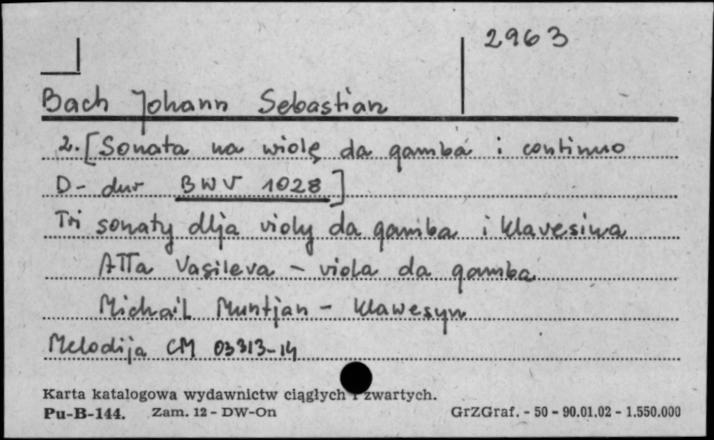 2963
Bach Johann Sebastian
2. [Sonata na wiolę da gamba i continuo
D-dur BWV 1028]
Tri sonaty dlja violy da gamba i klavesina
Alla Vasileva - viola da gamba
Michail Muntjan - klawesyn
Melodija CM 03313-14
Karta katalogowa wydawnictw ciągłych i zwartych.
Pu-B-144. Zam. 12 - DW-On GrZGraf. - 50 - 90.01.02 - 1.550.000